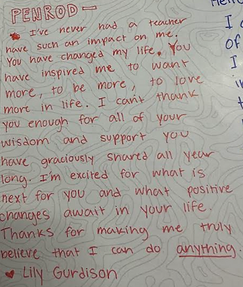 PENROD —
I've never had a teacher
have such an impact on me.
You have changed my life. You
have inspired me to want
more, to be more, to love
more in life. I can't thank
you enough for all of your
wisdom and support you
have graciously shared all year
long. I'm excited for what is
next for you and what positive
changes await in your life
Thanks for making me truly
believe that I can do anything.
♥ Lily Gurdison
I
of
I